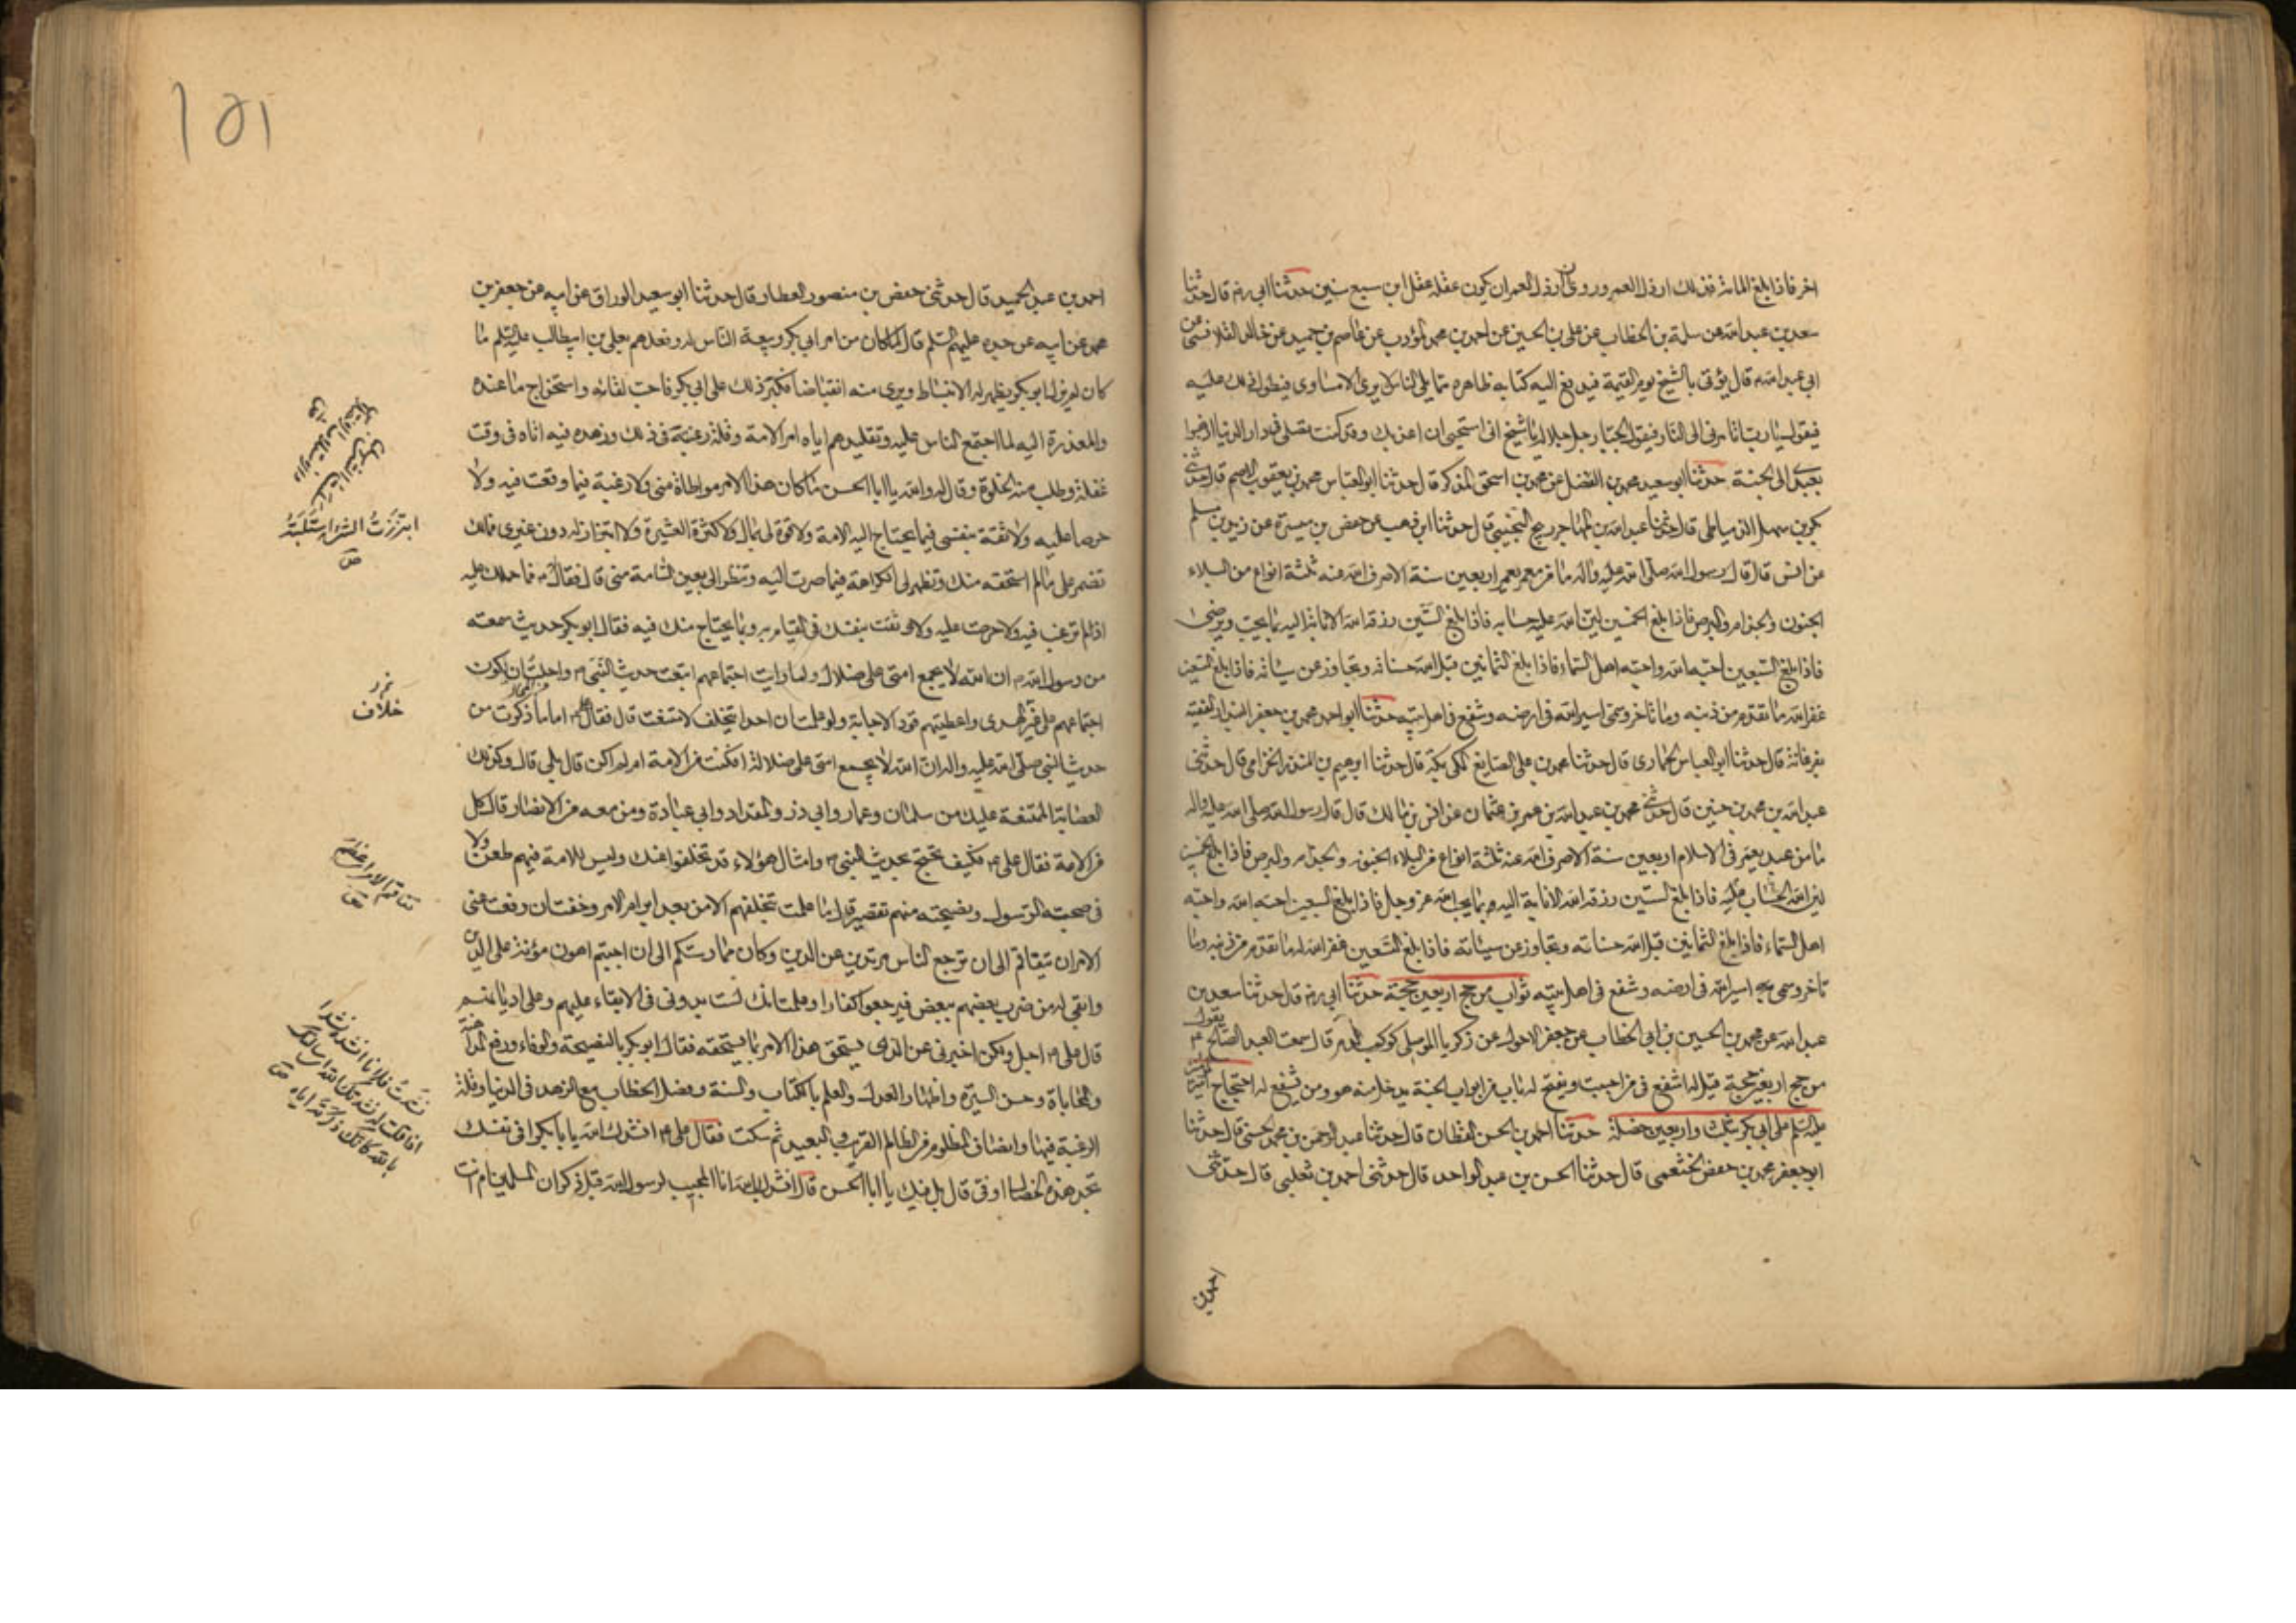 اخر فاذا بلغ المائة فذلك ارذل العمر وروى ان ارذل العمر ان يكون عقله عقل ابن سبع سنين حدثنا ابي ره قال حدثنا
سعد بن عبد الله عن سلمة بن الخطاب عن علي بن الحسين عن احمد بن محمد المؤدب عن عاصم بن حميد عن خالد القلانسي عن
ابي عبد الله ع قال يؤتى بالشيخ يوم القيمة فيدفع اليه كتابه ظاهره مما يلي الناس لا يرى الا مساوى فيطول ذلك عليه
فيقول يا رب اتامرني الى النار فيقول الجبار جل جلاله يا شيخ انى استحيي ان اعذبك وقد كنت تصلى في دار الدنيا اذهبوا
بعبدي الى الجنة حدثنا ابو سعيد محمد بن الفضل عن محمد بن اسحق المذكر قال حدثنا ابو العباس محمد بن يعقوب الاصم قال حدثنى
بكر بن سهل الدمياطى قال حدثنا عبد الله بن المهاجر رمح التجيبي قال حدثنا ابن وهب عن حفص بن ميسرة عن زيد بن مسلم
عن انس قال قال رسول الله صلى الله عليه واله ما من معمر يعمر اربعين سنة الا صرف الله عنه ثلثة انواع من البلاء
الجنون والجذام والبرص فاذا بلغ الخمسين لين الله عليه حسابه فاذا بلغ الستين رزقه الله الانابة اليه بما يحب ويرضى
فاذا بلغ السبعين احبه الله واحبه اهل السماء فاذا بلغ الثمانين قبل الله حسناته وتجاوز عن سيئاته فاذا بلغ التسعين
غفر الله ما تقدم من ذنبه وما تاخر وسمى اسير الله في ارضه وشفع في اهل بيته حدثنا ابو احمد محمد بن جعفر البندار الفقيه
بفرغانة قال حدثنا ابو العباس الحمادى قال حدثنا محمد بن على الصايغ المكى بمكة قال حدثنا ابرهيم بن المنذر الخزامى قال حدثنى
عبد الله بن محمد بن حنين قال حدثنى محمد بن عبد الله بن عمر بن عثمان عن انس بن مالك قال قال رسول الله صلى الله عليه واله
ما من عبد يعمر في الاسلام اربعين سنة الا صرف الله عنه ثلثة انواع من البلاء الجنون والجذام والبرص فاذا بلغ الخمسين
لين الله الحساب عليه فاذا بلغ الستين رزقه الله الانابة اليه بما يحب الله عز وجل فاذا بلغ السبعين احبه الله واحبه
اهل السماء فاذا بلغ الثمانين قبل الله حسناته وتجاوز عن سيئاته فاذا بلغ التسعين غفر الله له ما تقدم من ذنبه وما
تاخر وسمى اسير الله في ارضه وشفع في اهل بيته ثواب من حج اربعين حجة حدثنا ابي ره قال حدثنا سعد بن
عبد الله عن محمد بن الحسين بن ابي الخطاب عن جعفر الاحول عن زكريا الموصلى كوكب الدم قال سمعت العبد الصالح ع يقول
من حج اربعين حجة قيل له اشفع في من احببت ويفتح له باب من ابواب الجنة يدخل منه هو ومن يشفع له احتجاج امير المؤمنين
عليه السلم على ابي بكر بثلث واربعين خصلة حدثنا احمد بن الحسن القطان قال حدثنا عبد الرحمن بن محمد الحسنى قال حدثنا
ابو جعفر محمد بن حفص الخثعمى قال حدثنا الحسن بن عبد الواحد قال حدثنى احمد بن ثعلبى قال حدثنى
احمد بن
١٥١
احمد بن عبد الحميد قال حدثنى حفص بن منصور العطار قال حدثنا ابو سعيد الوراق عن ابيه عن جعفر بن
محمد عن ابيه عن جده عليهم السلم قال لما كان من امر ابي بكر وبيعة الناس له وفعلهم بعلي بن ابيطالب عليه السلم ما
كان لم يزل ابو بكر يظهر له الانبساط ويرى منه انقباضا فكبر ذلك على ابي بكر فاحب لقائه واستخراج ما عنده
والمعذرة اليه لما اجتمع الناس عليه وتقليدهم اياه امر الامة وقلة رغبته في ذلك وزهده فيه اتاه في وقت
غفلة وطلب منه الخلوة وقال له والله يا ابا الحسن ما كان هذا الامر مواطاة منى ولا رغبة فيما وقعت فيه ولا
حرصا عليه ولا ثقة بنفسى فيما يحتاج اليه الامة ولا قوة لى بمال ولا كثرة العشيرة ولا ابتزاز له دون غيرى فمالك
تضمر على ما لم استحقه منك وتظهر لى الكراهة فيما صرت اليه وتنظر الى بعين السامة منى قال فقال له ع فما حملك عليه
اذا لم ترغب فيه ولا حرصت عليه ولا وثقت بنفسك في القيام به وبما يحتاج منك فيه فقال ابو بكر حديث سمعته
من رسول الله ص ان الله لا يجمع امتى على ضلال ولما رايت اجتماعهم اتبعت حديث النبى ص واحلت ان يكون
اجتماعهم على غير الهدى واعطيتهم قود الاجابة ولو علمت ان احدا يتخلف لامتنعت قال فقال على ع اما ما ذكرت من
حديث النبي صلى الله عليه واله ان الله لا يجمع امتى على ضلالة افكنت من الامة ام لم اكن قال بلى قال وكذلك
العصابة الممتنعة عليك من سلمان وعمار وابي ذر والمقداد وابي عبادة ومن معه من الانصار قال كل
من الامة فقال على ع فكيف تحتج بحديث النبى ص وامثال هؤلاء قد تخلفوا عنك وليس للامة فيهم طعن ولا
في صحبته الرسول ونصيحته منهم تقصير قال ما علمت بتخلفهم الا من بعد ابرام الامر وخفت ان دفعت عنى
الامر ان يتفاقم الى ان ترجع الناس مرتدين عن الدين وكان ممارستكم الى ان اجبتم اهون مؤنة على الدين
وابقى له من ضرب بعضهم ببعض فيرجعوا كفارا وعلمت انك لست بدونى في الابقاء عليهم وعلى اديانهم
قال على ع اجل ولكن اخبرنى عن الذى يستحق هذا الامر بما يستحقه فقال ابو بكر بالنصيحة والوفاء ودفع المداهنة
والمحاباة وحسن السيرة واظهار العدل والعلم بالكتاب والسنة وفصل الخطاب مع الزهد في الدنيا وقلة
الرغبة فيها وانصاف المظلوم من الظالم القريب والبعيد ثم سكت فقال على ع انشدك الله يا ابا بكر افى نفسك
تجد هذه الخصال او فى قال بل فيك يا ابا الحسن قال انشدك بالله انا المجيب لرسول الله قبل ذكران المسلمين ام انت
ابتززت الشئ استلبته
ص
خلاف
تفاقم الامر عظم
ص
نشدت فلانا انشده نشدا
اذا قلت له نشدتك الله اى سالتك
بالله كانك ذكرته اياه
ص